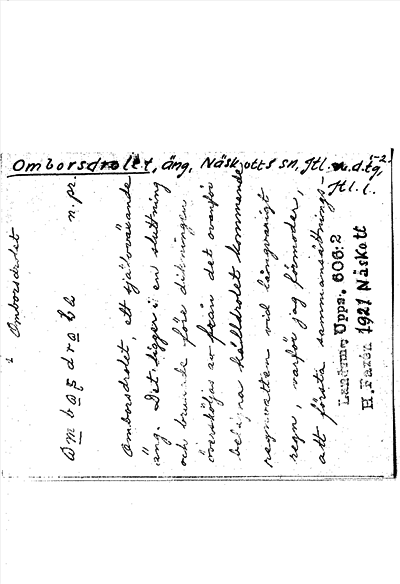 Omborsdrolet, äng, Näskotts sn, Jtl.
Jtl. l.
i Omborsdrolet
n. pr.
Omborsdrolet, ett självväxande
äng. Det ligger i en sluttning
och brukade före dikningen
översköljas av från det ovanför
belägna källdrolet kommande
regnvatten vid långvarigt
regn, varför jag förmodar,
att första sammansättnings-
Landsm. Upps. 606:2
H. Faxén 1921 Näskott